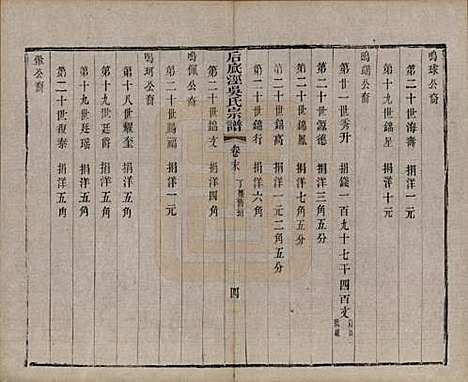 鳴球公裔
第二十世海壽 捐洋二元
第十九世錦星 捐洋十元
鳴瑞公裔
第廿一世秀升 捐錢一百九十七千四百文
第二十世錦德 捐洋三角五分
第二十世錦源 捐洋七角五分
第二十世錦高 捐洋一元二角五分
第二十世錦行 捐洋六角
后底涇吳氏宗譜 卷末 四
第二十世錦文 捐洋四角
鳴佩公裔
第二十世錫福 捐洋一元
鳴珂公裔
第十八世耀奎 捐洋五角
第十九世廷爵 捐洋五角
第十九世廷瑤 捐洋五角
第二十世夜泰 捐洋五角
公裔